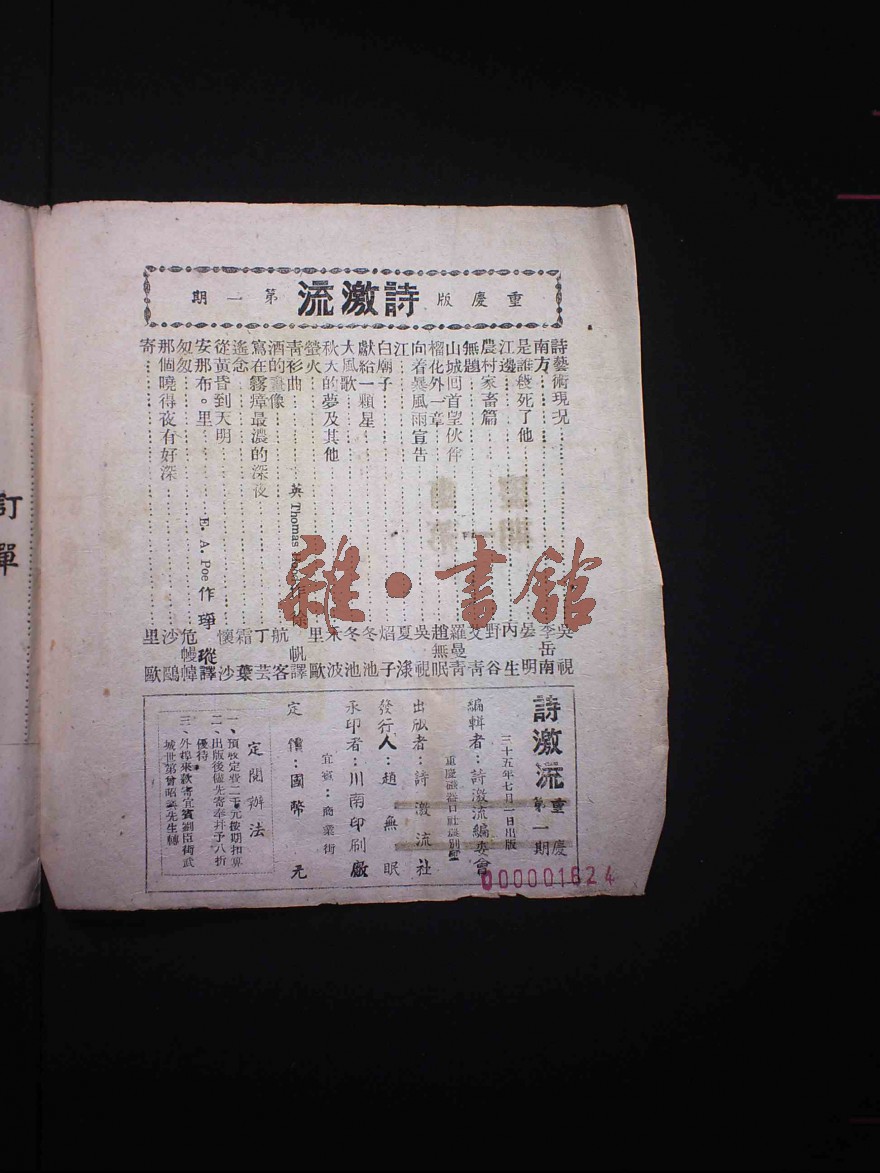 重慶版 詩激流 第一期
詩藝術現況……吳視
南方……李岳南
是誰極死了他……晏明
江邊……內生
農村家畜篇……野谷
無題……青
山城回首望伙伴……羅曼青
榴花外一章……趙無眠
向着暴風雨宣告……吳視
江……夏渌
白廟子……焰子
獻給一顆星……冬池
大風歌……冬池
秋天的夢及其他……禾波
螢火……里歐
青衫曲……英 Thomas 作 徐帆譯
酒的畫像……航客
寫在霧瘴最濃的深夜……丁芸
遙念……霜葉
從黃昏到天明……懷沙
安那布。里……E. A. Poe作 琤瑽譯
匆匆……危幔幃
那個曉得夜有好深……沙鷗
寄……里歐
詩激流 重慶第一期
三十五年七月一日出版
編輯者：詩激流編委會
重慶磁器口社
出版者：詩激流社
發行人：趙無眠
承印者：川南印刷廠
宜賓：商業街
定價：國幣 元
定閱辦法
一、預收定費二千元按期扣算
二、出版後儘先寄奉幷予八折
優待
三、外埠來款寄宜賓劉臣街武
城世第曾昭 先生轉
000001624
訂單
雜·書館